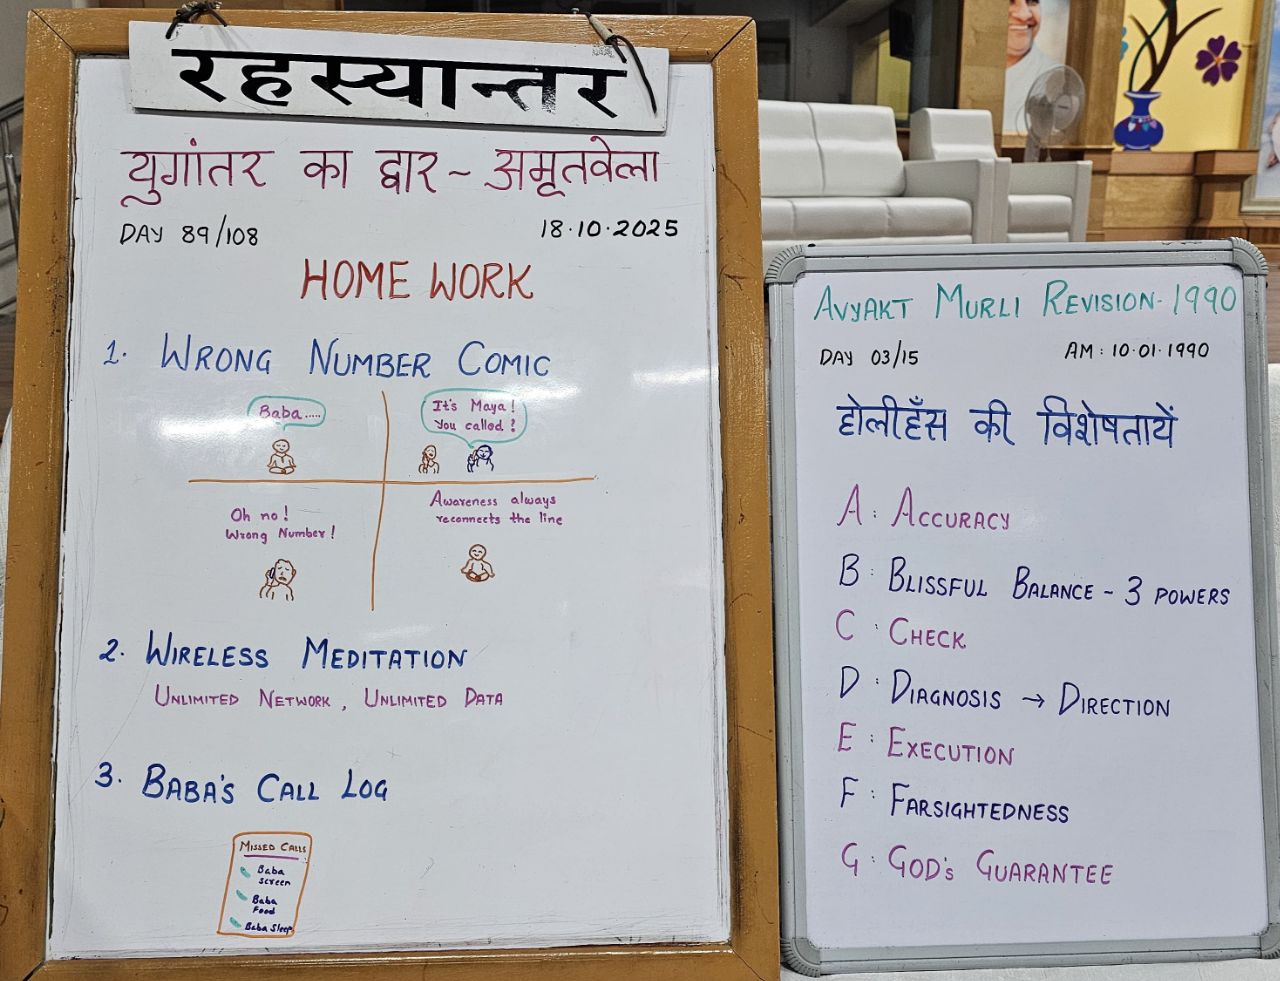 रहस्यान्तर
युगांतर का द्वार ~ अमृतवेला
DAY 89/108
18.10.2025
HOME WORK
1. WRONG NUMBER COMIC
Baba.....
It's Maya!
You called?
Oh no!
Wrong Number!
Awareness always
reconnects the line
2. WIRELESS MEDITATION
UNLIMITED NETWORK, UNLIMITED DATA
3. BABA'S CALL LOG
MISSED CALLS
Baba
screen
Baba
Food
Baba Sleep
AVYAKT MURLI REVISION-1990
DAY 03/15
AM: 10.01.1990
होलीहँस की विशेषतायें
A: ACCURACY
B: BLISSFUL BALANCE - 3 POWERS
C: CHECK
D: DIAGNOSIS → DIRECTION
E: EXECUTION
F: FARSIGHTEDNESS
G: GOD's GUARANTEE